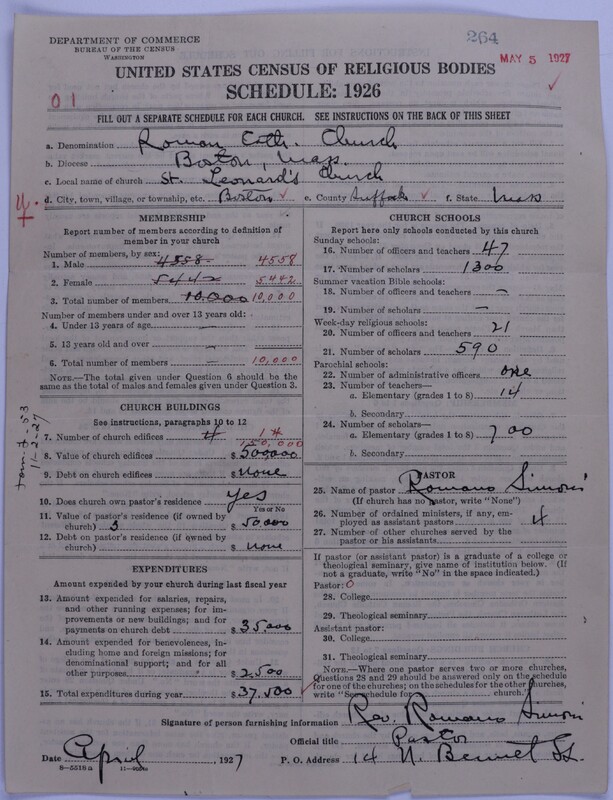 DEPARTMENT OF COMMERCE
BUREAU OF THE CENSUS
WASHINGTON
264
MAY 5 1927
UNITED STATES CENSUS OF RELIGIOUS BODIES
SCHEDULE: 1926
01
FILL OUT A SEPARATE SCHEDULE FOR EACH CHURCH. SEE INSTRUCTIONS ON THE BACK OF THIS SHEET
a. Denomination Roman Cath. Church
b. Diocese Boston, Mass.
c. Local name of church St. Leonard's Church
d. City, town, village, or township, etc. Boston e. County Suffolk f. State Mass
MEMBERSHIP
Report number of members according to definition of
member in your church
Number of members, by sex:
1. Male 4558 4558
2. Female 5442 5,442
3. Total number of members 10,000 10,000
Number of members under and over 13 years old:
4. Under 13 years of age —
5. 13 years old and over —
6. Total number of members — 10,000
NOTE.—The total given under Question 6 should be the
same as the total of males and females given under Question 3.
CHURCH BUILDINGS
See instructions, paragraphs 10 to 12
7. Number of church edifices 4 1
150,000
8. Value of church edifices $ 500000
9. Debt on church edifices $ None
10. Does church own pastor's residence yes
Yes or No
11. Value of pastor's residence (if owned by
church) $ 50000
12. Debt on pastor's residence (if owned by
church) $ None
EXPENDITURES
Amount expended by your church during last fiscal year
13. Amount expended for salaries, repairs,
and other running expenses; for im-
provements or new buildings; and for
payments on church debt $ 35,000
14. Amount expended for benevolences, in-
cluding home and foreign missions; for
denominational support; and for all
other purposes $ 2,500
15. Total expenditures during year $ 37,500
CHURCH SCHOOLS
Report here only schools conducted by this church
Sunday schools:
16. Number of officers and teachers 47
17. Number of scholars 1300
Summer vacation Bible schools:
18. Number of officers and teachers —
19. Number of scholars —
Week-day religious schools:
20. Number of officers and teachers 21
21. Number of scholars 590
Parochial schools:
22. Number of administrative officers one
23. Number of teachers—
a. Elementary (grades 1 to 8) 14
b. Secondary
24. Number of scholars—
a. Elementary (grades 1 to 8) 700
b. Secondary
PASTOR
25. Name of pastor Romano Simoni
(If church has no pastor, write "None")
26. Number of ordained ministers, if any, em-
ployed as assistant pastors 4
27. Number of other churches served by the
pastor or his assistants
If pastor (or assistant pastor) is a graduate of a college or
theological seminary, give name of institution below. (If
not a graduate, write "No" in the space indicated.)
Pastor: 0
28. College
29. Theological seminary
Assistant pastor:
30. College
31. Theological seminary
NOTE.—Where one pastor serves two or more churches,
Questions 28 and 29 should be answered only on the schedule
for one of the churches; on the schedules for the other churches,
write "See schedule for church."
Signature of person furnishing information Rev. Romano Simoni
Official title Pastor
Date April 1927 P. O. Address 14 N. Bennet St.
8—5518a